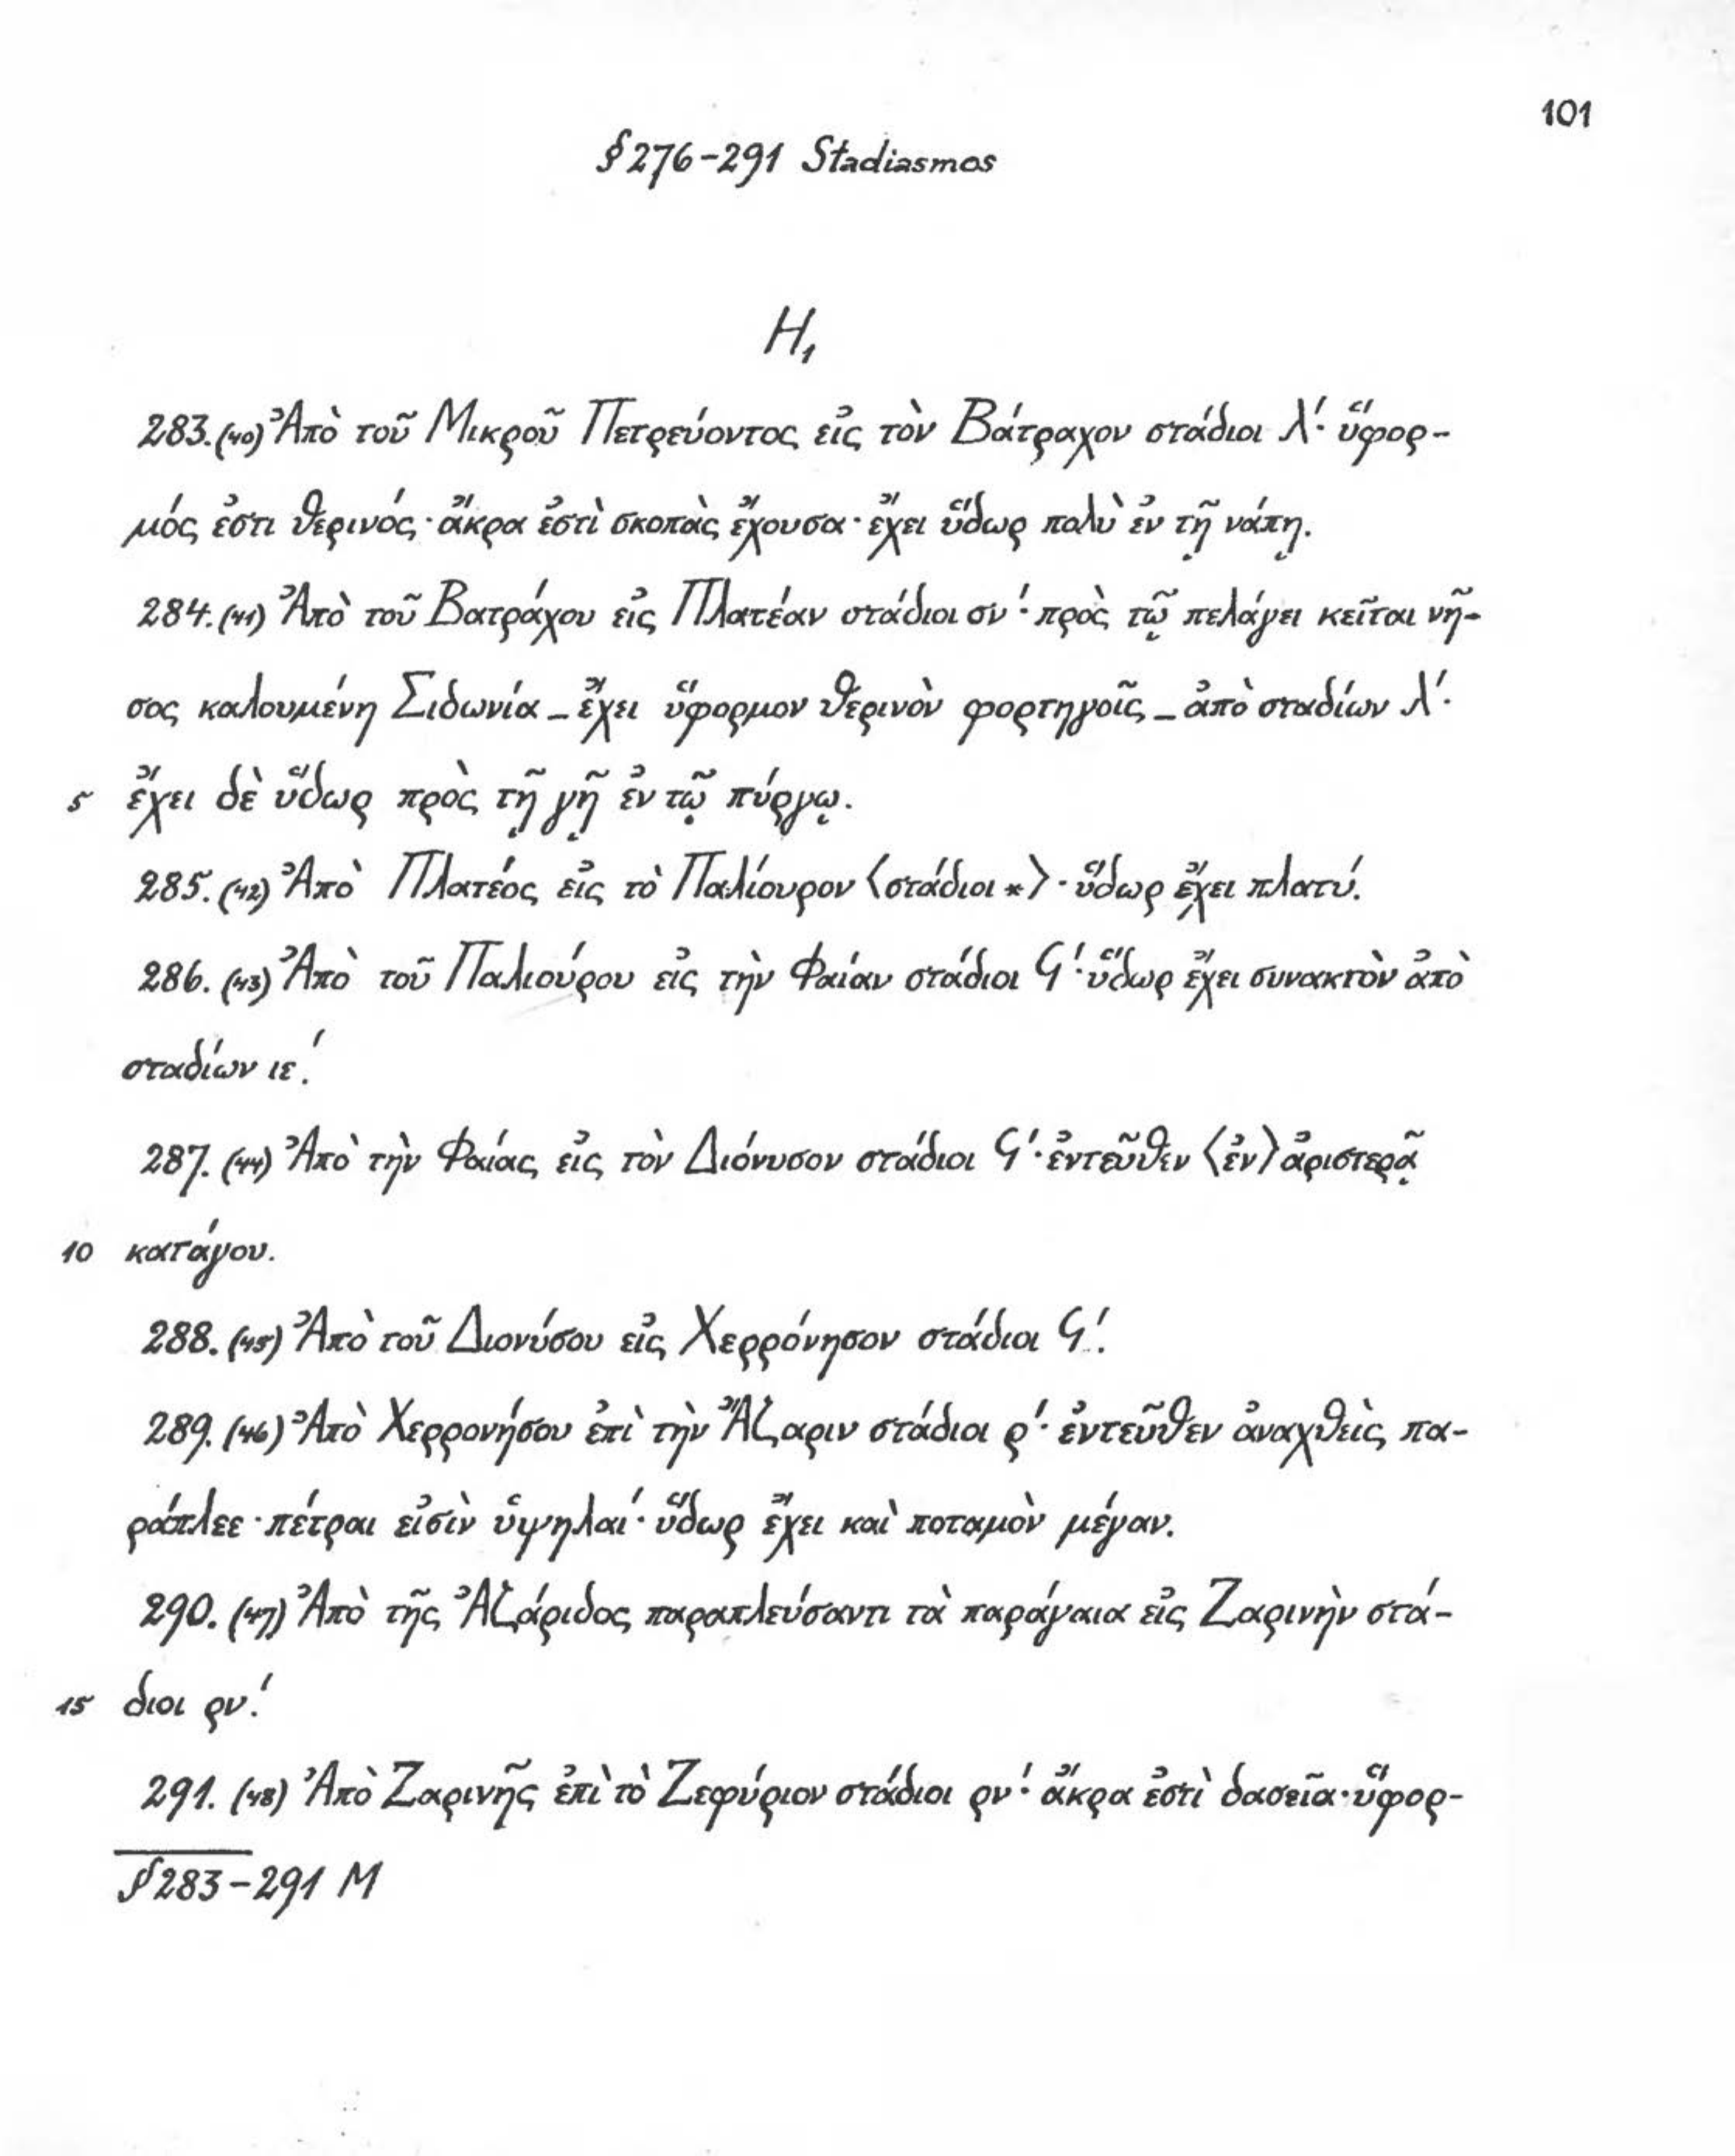 101
§ 276-291 Stadiasmos
H₁
283. (40) Ἀπὸ τοῦ Μικροῦ Πετρεύοντος εἰς τὸν Βάτραχον στάδιοι λ´· ὕφορ-
μός ἐστι θερινός· ἄκρα ἐστὶ σκοπὰς ἔχουσα· ἔχει ὕδωρ πολὺ ἐν τῇ νάπῃ.
284. (41) Ἀπὸ τοῦ Βατράχου εἰς Πλατέαν στάδιοι σν´· πρὸς τῷ πελάγει κεῖται νῆ-
σος καλουμένη Σιδωνία – ἔχει ὕφορμον θερινὸν φορτηγοῖς – ἀπὸ σταδίων λ´·
5 ἔχει δὲ ὕδωρ πρὸς τῇ γῇ ἐν τῷ πύργῳ.
285. (42) Ἀπὸ Πλατέος εἰς τὸ Παλίουρον ⟨στάδιοι *⟩· ὕδωρ ἔχει πλατύ.
286. (43) Ἀπὸ τοῦ Παλιούρου εἰς τὴν Φαίαν στάδιοι Ϛ´· ὕδωρ ἔχει συνακτὸν ἀπὸ
σταδίων ιε´.
287. (44) Ἀπὸ τὴν Φαίας εἰς τὸν Διόνυσον στάδιοι Ϛ´· ἐντεῦθεν ⟨ἐν⟩ ἀριστερᾷ
10 κατάγου.
288. (45) Ἀπὸ τοῦ Διονύσου εἰς Χερρόνησον στάδιοι Ϛ´.
289. (46) Ἀπὸ Χερρονήσου ἐπὶ τὴν Ἄζαριν στάδιοι ρ´· ἐντεῦθεν ἀναχθεὶς πα-
ράπλεε· πέτραι εἰσὶν ὑψηλαί· ὕδωρ ἔχει καὶ ποταμὸν μέγαν.
290. (47) Ἀπὸ τῆς Ἀζάριδος παραπλεύσαντι τὰ παράγαια εἰς Ζαρινὴν στά-
15 διοι ρν´.
291. (48) Ἀπὸ Ζαρινῆς ἐπὶ τὸ Ζεφύριον στάδιοι ρν´· ἄκρα ἐστὶ δασεῖα· ὕφορ-
§ 283-291 M